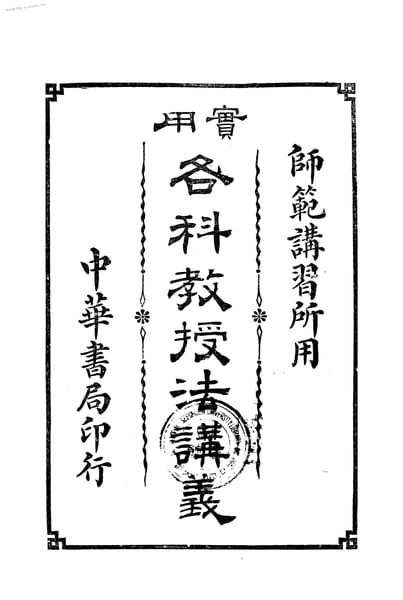 師範講習所用
實用
各科教授法講義
中華書局印行